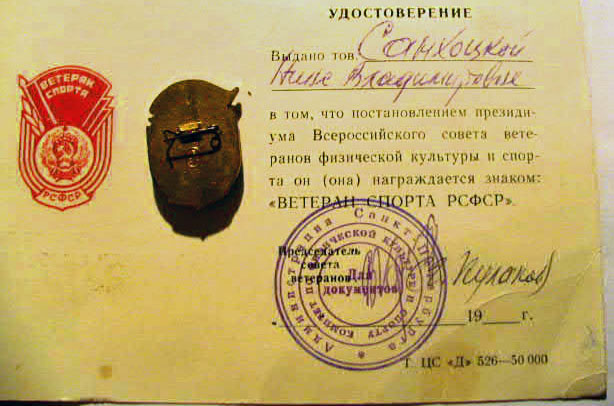 ВЕТЕРАН
СПОРТА
РСФСР
УДОСТОВЕРЕНИЕ
Выдано тов. Санхоцкой
Нине Владимировне
в том, что постановлением президи-
ума Всероссийского совета вете-
ранов физической культуры и спор-
та он (она) награждается знаком:
«ВЕТЕРАН СПОРТА РСФСР».
Председатель
совета
ветеранов
Администрация Санкт-Петербурга
Комитет по физической культуре и спорту
Для
документов
19 г.
Т. ЦС «Д» 526—50 000